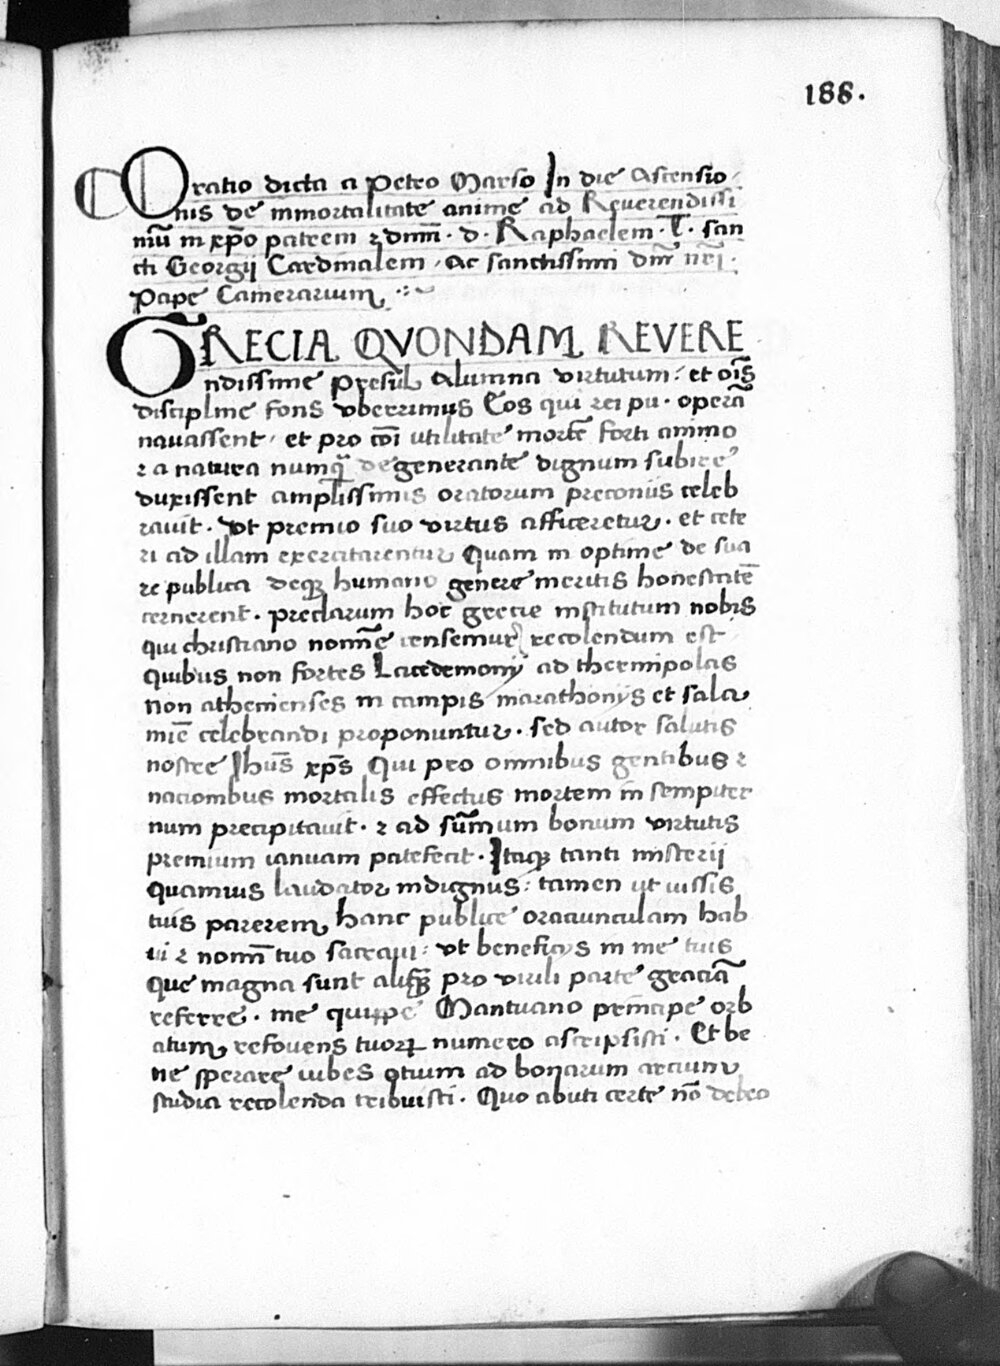 188.
Oratio dicta a Petro Marso In die Ascensio
nis de inmortalitate anime ad Reuerendissi
mū in xp̄o patrem ⁊ dnm̄ · d · Raphaelem · T · san
cti Georgij Cardinalem · Ac sanctissimi dn̄i nr̄i ·
Pape Camerarium
GRECIA QVONDAM REVERE
ndissime Presul Alumna virtutum : et oīs
discipline fons vberrimus Eos qui rei pu · operā
nauassent , et pro cōi utilitate mortē forti animo
⁊ a natura numq̄ degenerante dignum subire
duxissent amplissimis oratorum preconiis celeb
rauit · Vt premio suo virtus afficeretur · et cete
ri ad illam exercitarentur Quam in optime de sua
re publica deq3 humano genere meritis honestatē
cernerent · preclarum hoc grecie institutum nobis
qui christiano nomīe censemur recolendum est
quibus non fortes Lacedemonij ad thermipolas
non athenienses in campis marathonijs et sala
mīe celebrandi proponuntur · sed autor salutis
nostre Jhūs xp̄s Qui pro omnibus gentibus ⁊
nacionibus mortalis effectus mortem in sempiter
num precipitauit · ⁊ ad sūmum bonum virtutis
premium ianuam patefecit · Itaq3 tanti misterij
quamuis laudator indignus : tamen ut iussis
tuis parerem hanc publice oraciunculam hab
ui ⁊ nomī tuo sacraui : vt beneficijs in me tuis
que magna sunt aliq̄ pro virili parte graciā
referre · me quippe Mantuano principe orb
atum refouens tuorꝝ numero ascripsisti · Et be
ne sperare iubes otium ad bonarum arcium
studia recolenda tribuisti · Quo abuti certe nō debeo